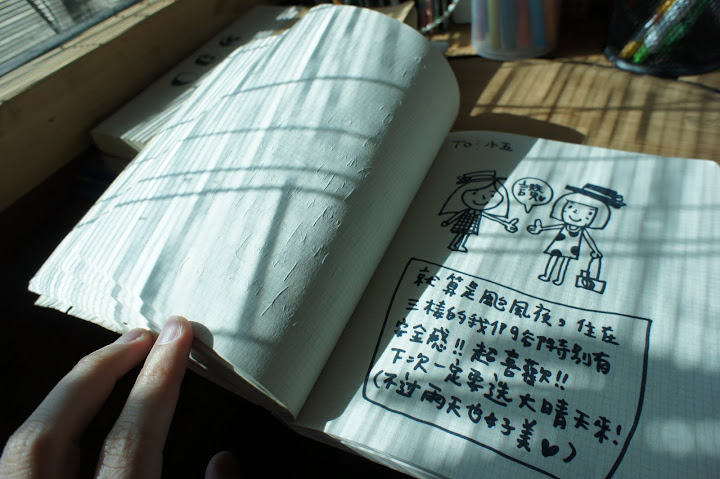 TO：小五
讚
就算是颱風夜，住在
三樓的我們卻特別有
安全感!! 超喜歡!!
下次一定要選大晴天來!
(不过雨天也好美♥)